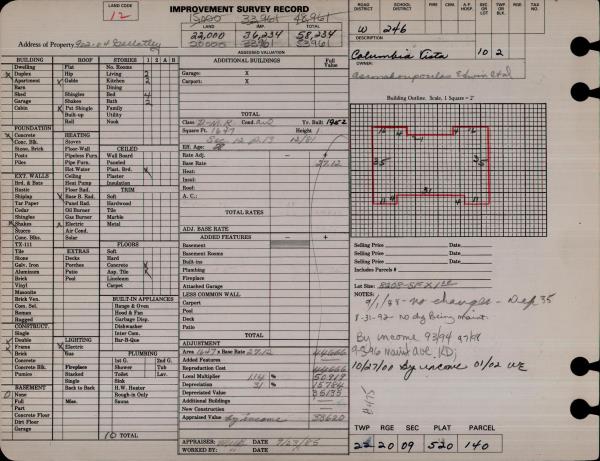 LAND CODE
12
IMPROVEMENT SURVEY RECORD
33,961 48,961
LAND IMP. TOTAL
22,000 36,234 58,234
20,000 33,961
ASSESSED VALUATION
Address of Property 902-04
ROAD DISTRICT SCHOOL DISTRICT FIRE CEM. A.P. HOSP. SEC OR LOT RGE OR TAX NO.
W 246
DESCRIPTION
Columbia Vista 10 2
OWNER
BUILDING ROOF STORIES 1 2
Dwelling Flat No. Rooms
Duplex Hip Living 2
Apartment Gable Kitchen 2
Barn Dining
Shed Shingles Bed 4
Garage Shakes Bath 2
Cabin Pat Shingle Family
Built-up Utility
Roll Nook
FOUNDATION
Concrete HEATING
Conc. Blk. Stoves
Stone, Brick Floor-Wall CEILED
Posts Pipeless Furn. Wall Board
Piles Pipe Furn. Paneled
Hot Water Plast. Brd.
EXT. WALLS Ceiling Plaster
Brd. & Bats Heat Pump Insulation
Rustic Floor Rad. TRIM
Shiplap Base B. Rad. Soft
Tar Paper Panel Rad. Hardwood
Cedar Oil Burner Tile
Shingles Gas Burner Marble
Shakes Electric Metal
Stucco Air Cond.
Conc. Blks. Solar FLOORS
TX-111 Soft
Tile EXTRAS
Stone Decks Hard
Galv. Iron Porches Concrete
Aluminum Patio Asp. Tile
Brick Pool Linoleum
Vinyl Carpet
Masonite
Brick Ven. BUILT-IN APPLIANCES
Com. Sel. Range & Oven
Roman Hood & Fan
Rugged Garbage Disp.
CONSTRUCT. Dishwasher
Single Inter Com.
Double LIGHTING Bar-B-Que
Frame Electric
Brick Gas PLUMBING
Concrete 1st G. 2nd G.
Concrete Blk. Fireplace Shower Tub
Pumice Stacked Toilet Lav.
Single Sink
BASEMENT Back to Back H.W. Heater
None Rough-in Only
Full Misc. Sauna
Part
Concrete Floor
Dirt Floor
Garage
10 TOTAL
ADDITIONAL BUILDINGS Full Value
Garage: X
Carport: X
TOTAL
Class Yr. Built 1952
Square Ft. 1647 Height 1
12/81
Eff. Age:
Rate Adj. - +
Base Rate 27.12
Heat:
Insul:
Roof:
A. C.:
TOTAL RATES
ADJ. BASE RATE
ADDED FEATURES - +
Basement
Basement Rooms
Built-ins
Plumbing
Fireplace
Attached Garage
LESS COMMON WALL
Carport
Pool
Deck
Patio
TOTAL
ADJUSTMENT
Area 1647 x Base Rate 27.12 44666
Added Features
Reproduction Cost 44666
Local Multiplier 114 % 50919
Depreciation 31 % 15784
Depreciated Value 35135
Additional Buildings
New Construction
Appraised Value by income 33620
APPRAISED: DATE 9/23/85
WORKED BY: DATE
Building Outline. Scale, 1 Square = 2'
35
35
31
Selling Price Date
Selling Price Date
Selling Price Date
Includes Parcels #
Lot Size:
NOTES:
9/1/88 - no changes - Dep 35
8-31-92 - No dg Being Maint.
By income 93/94 97/98
10/27/00 By income 01/02
TWP RGE SEC PLAT PARCEL
22 20 09 520 140